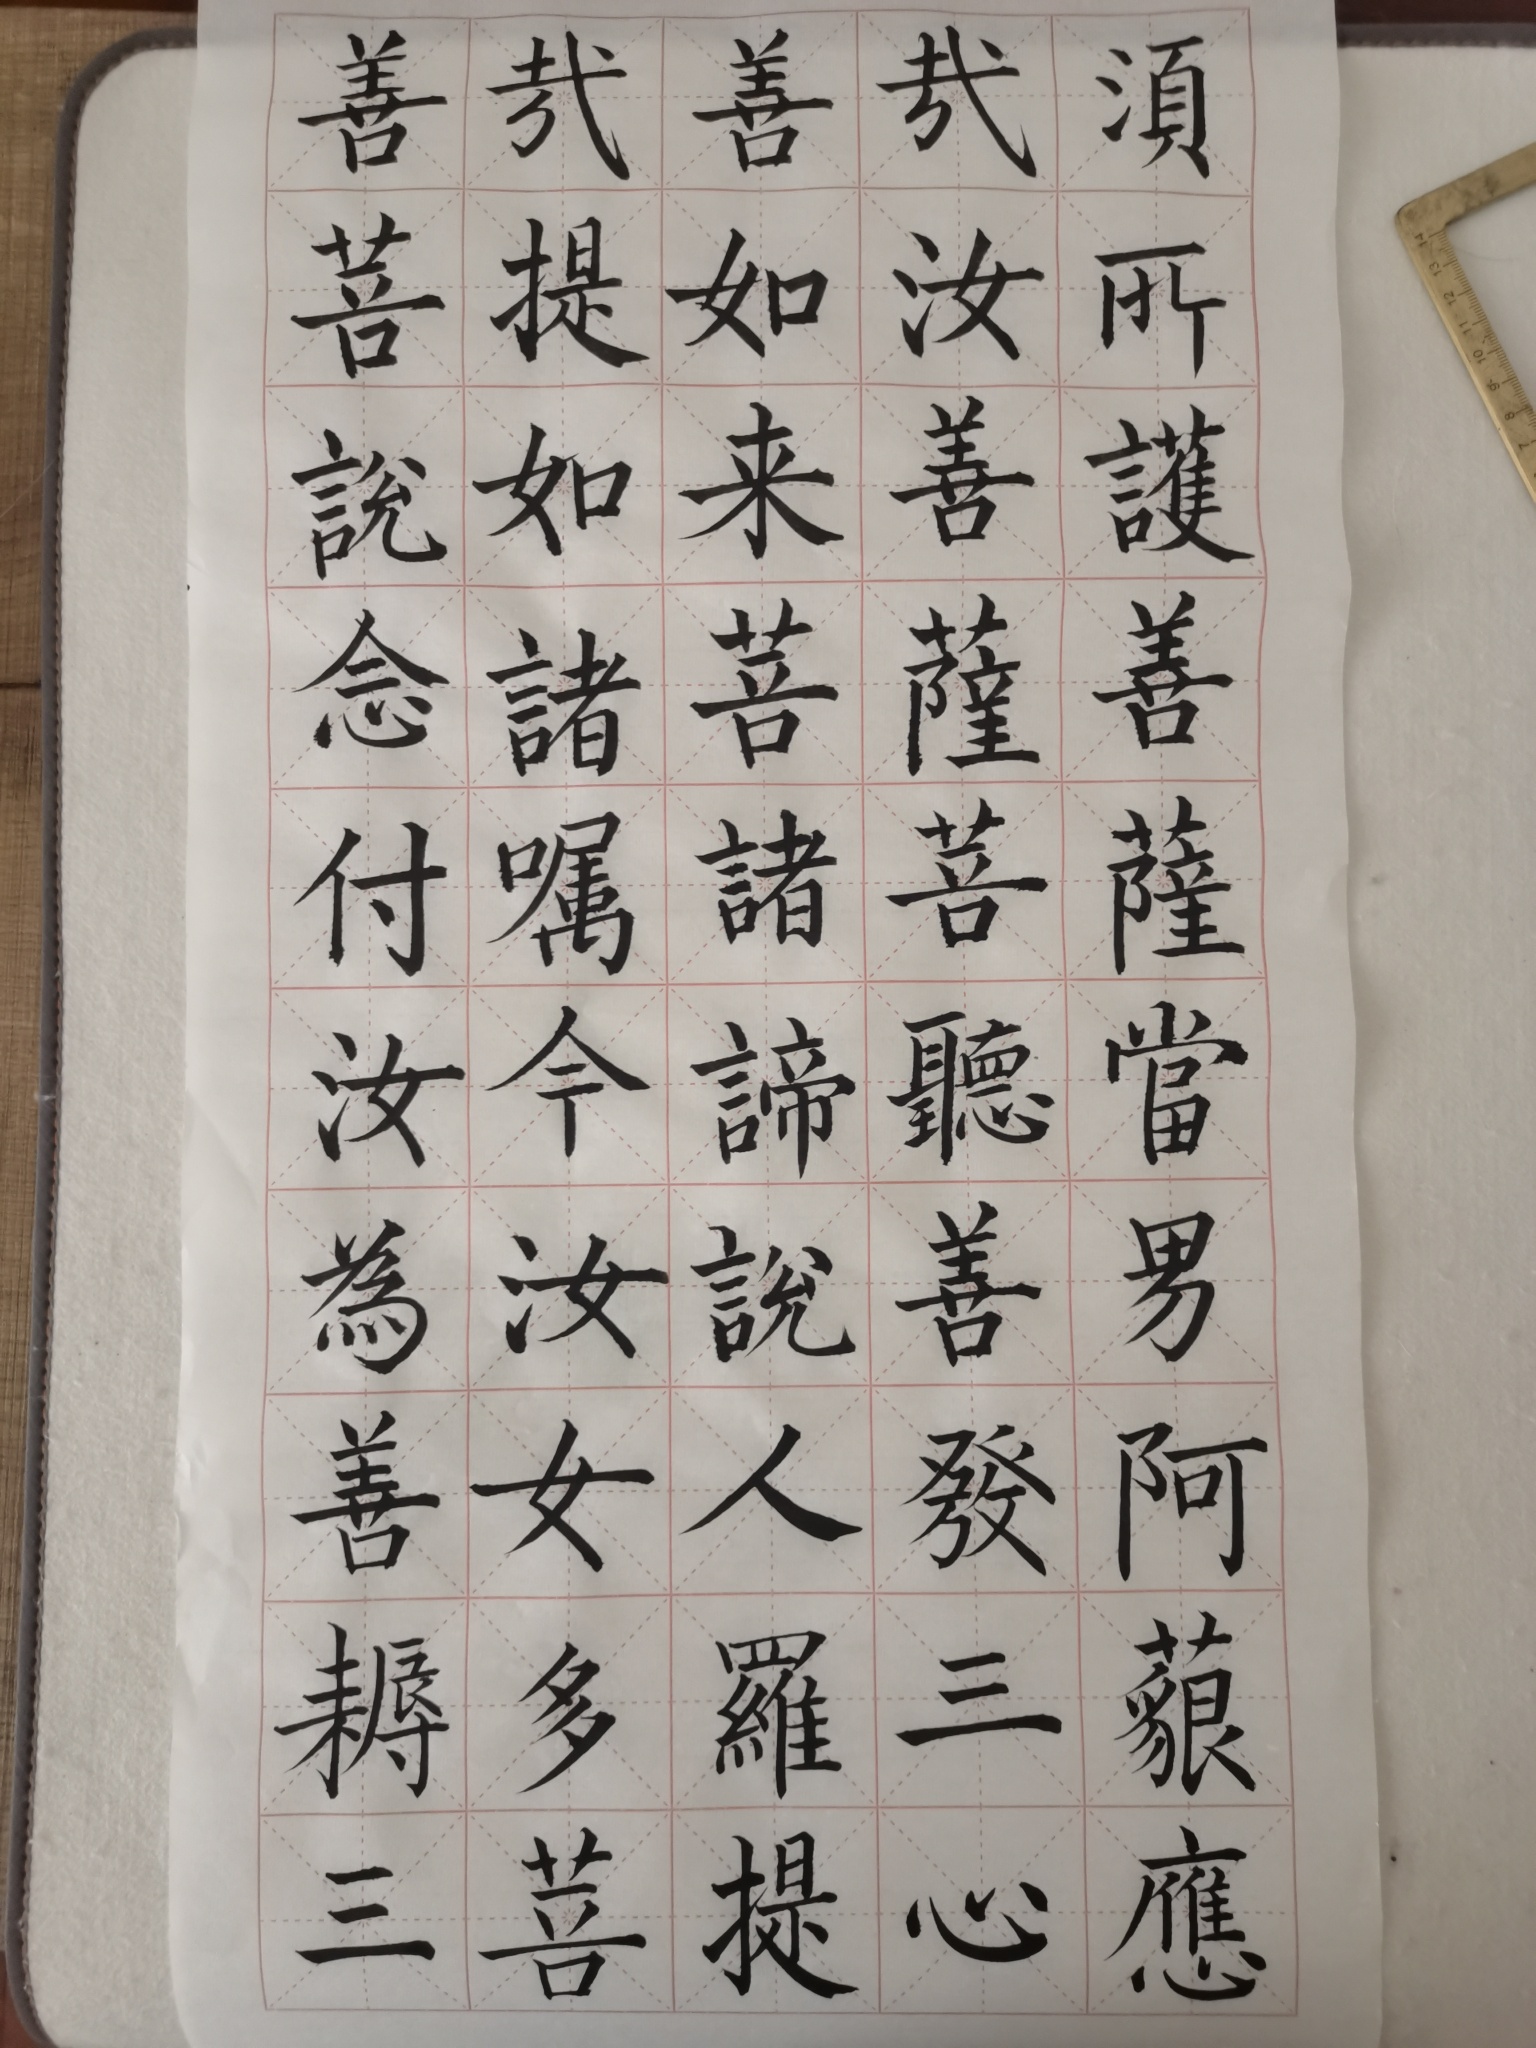 善哉善哉須
菩提如汝所
說如来善護
念諸菩薩善
付嘱諸菩薩
汝今諦聽當
為汝說善男
善女人發阿
耨多羅三藐
三菩提心應